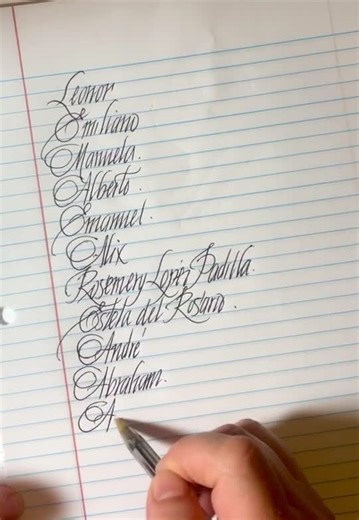 Leonor
Emiliano
Manuela.
Alberto.
Emanuel.
Alix
Rosemery López Padilla.
Estela del Rosario.
André
Abraham.
A